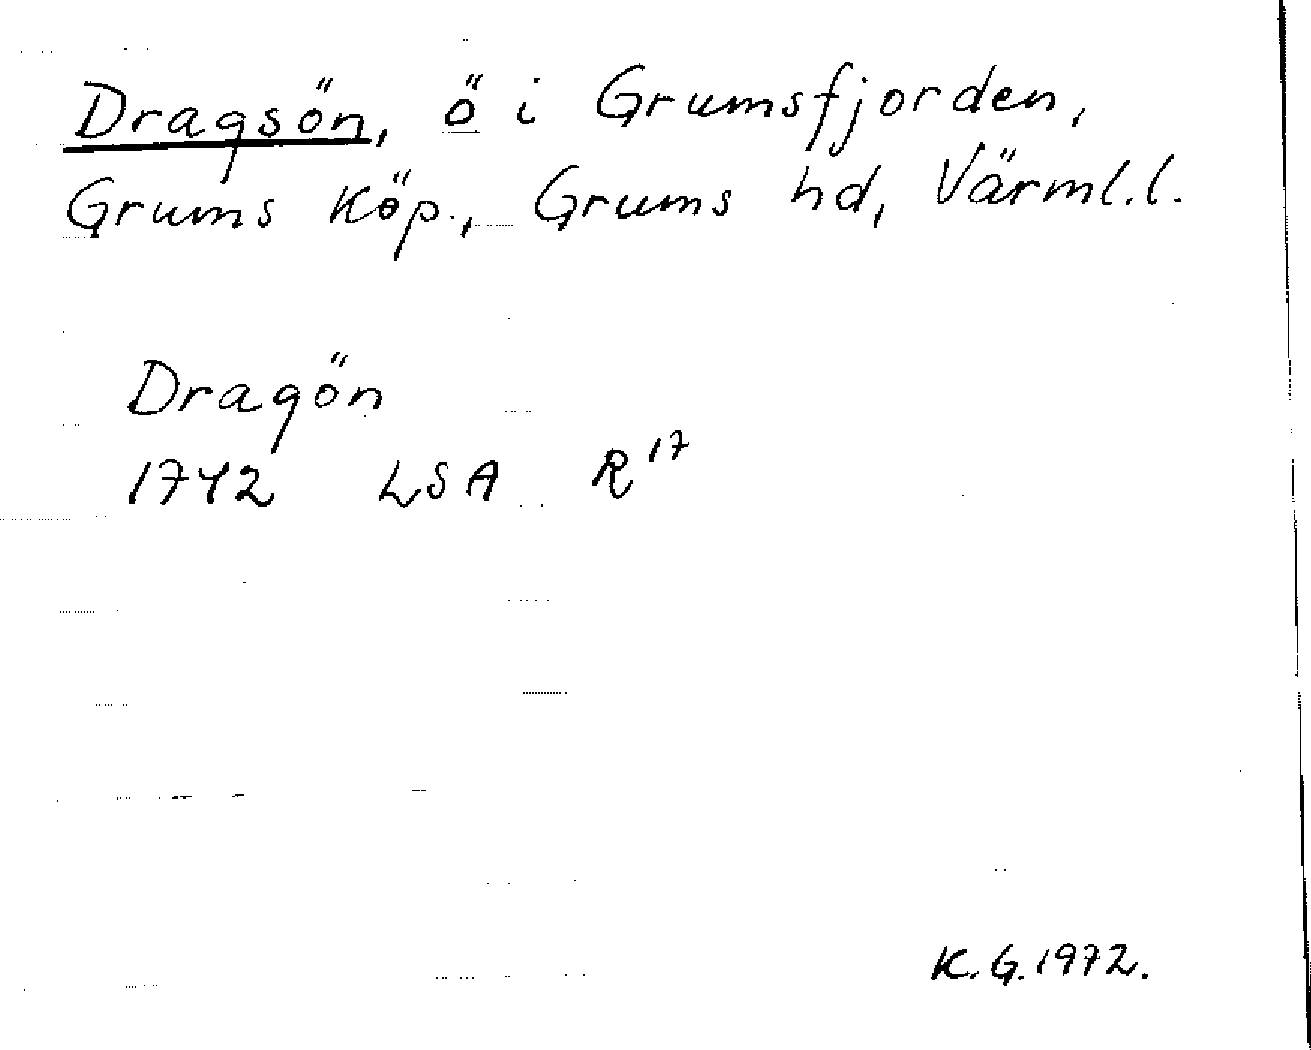 Dragsön, ö i Grumsfjorden,
Grums köp., Grums hd, Värml.l.
Dragön
1742 LSA R17
K.G.1972.